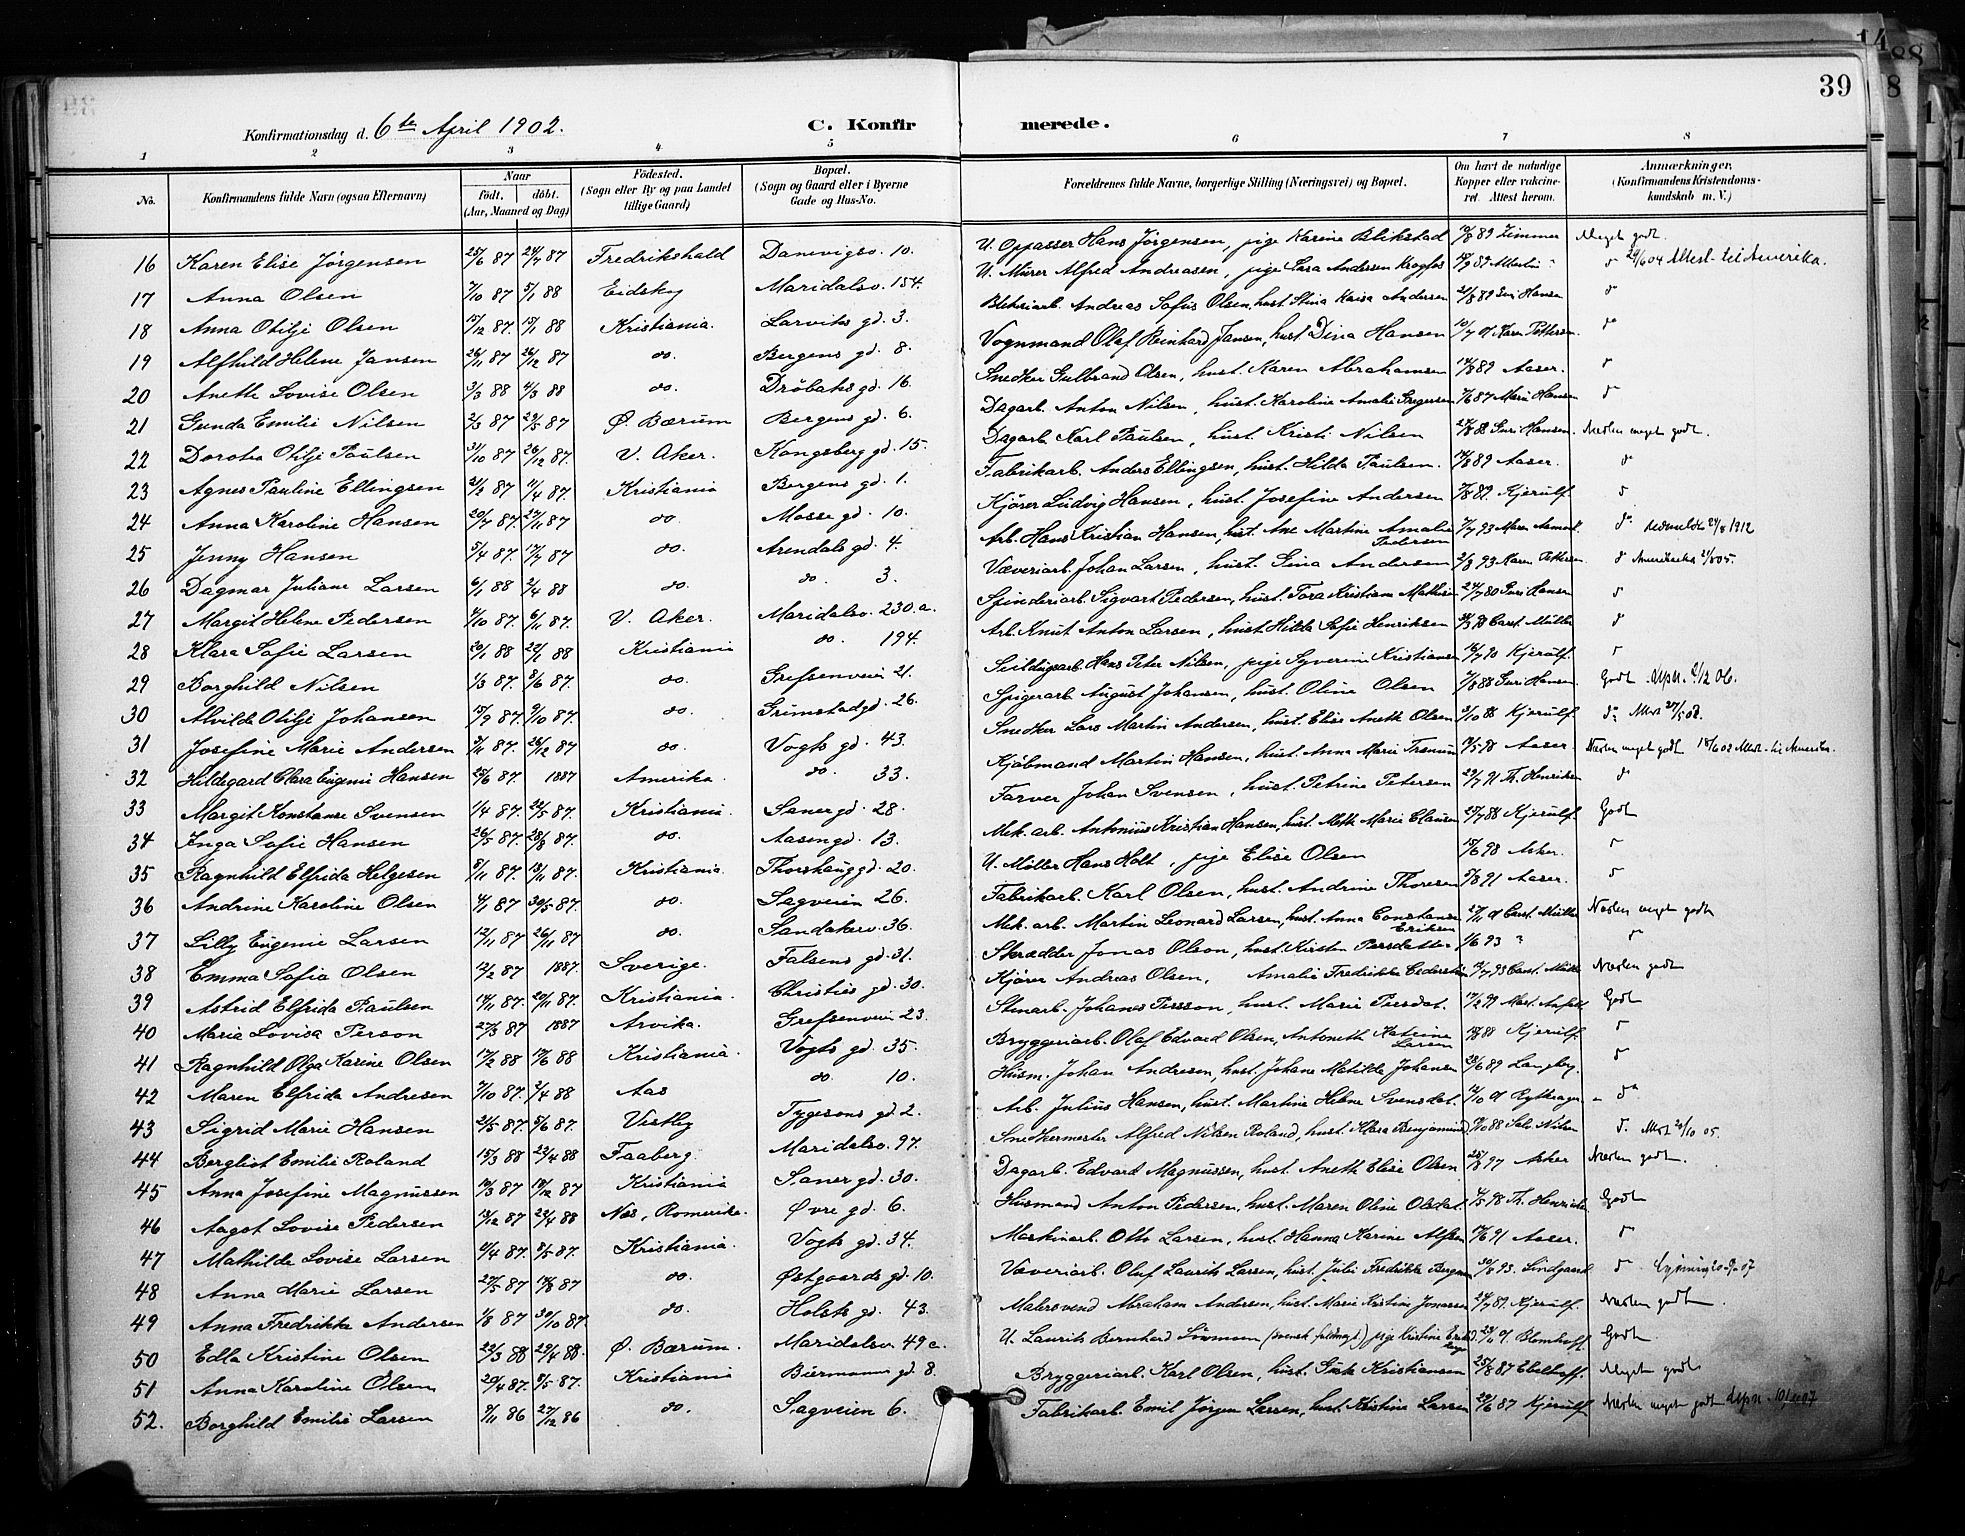 39
Konfirmationsdag d. 6te April 1902. C. Konfirmerede.
1 2 3 4 5 6 7 8
No. Konfirmandens fulde Navn (ogsaa Efternavn) Naar født, døbt. (Aar, Maaned og Dag) Fødested. (Sogn eller By og paa Landet tillige Gaard) Bopæl. (Sogn og Gaard eller i Byerne Gade og Hus-No. Forældrenes fulde Navne, borgerlige Stilling (Næringsvei) og Bopæl. Om havt de naturlige Kopper eller vakcineret. Attest herom. Anmærkninger. (Konfirmandens Kristendomskundskab m. V.)
16 Karen Elise Jørgensen 25/6 87 24/7 87 Fredrikshald Danevigsv. 10. U. Oppasser Hans Jørgensen, pige Karine Blikstad Zimmer Meget godt.
17 Anna Olsen 7/10 87 5/1 88 Eidskog Maridalsv. 154. U. Murer Alfred Andreasen, pige Lara Andersen 29/6 04 Attest til Amerika.
18 Anna Otilje Olsen 15/12 87. 15/1 88 Kristiania. Larviks gd. 3. Andreas Sofus Olsen, hust. Stina Kaisa Andersen Guri Hansen do
19 Alfhild Helene Jansen 26/11 87 26/12 87 do. Bergens gd. 8. Vognmand Olaf Reinhard Jansen, hust. Dina Hansen Karen Pettersen do
20 Anette Lovise Olsen 3/3 88 4/3 88 do. Drøbaks gd. 16. Snedker Gulbrand Olsen, hust. Karen Abrahamsen Aaser. do
21 Gunda Emilie Nilsen 87 87 Ø. Bærum Bergens gd. 6. Dagarb. Anton Nilsen, hust. Karoline Amalie Marie Hansen do
22 Dorthea Otilje Paulsen 31/10 87 26/12 87. V. Aker. Kongsberg gd. 15. Dagarb. Karl Paulsen, hust. Kristi Nilsen Guri Hansen. Næsten meget godt.
23 Agnes Pauline Ellingsen 87 11/4 87. Kristiania Bergens gd. 1. Fabrikarb. Anders Ellingsen, hust. Hilda Paulsen. Aaser. do
24 Anna Karoline Hansen 20/7 87. 87 do. Mosse gd. 10. Kjører Ludvig Hansen, hust. Josefine Andersen Kjerulf. do
25 Jenny Hansen 5/4 87. 17/7 87 do. Arendals gd. 4. Arb. Hans Kristian Hansen, hust. Ane Martine Amalie Pedersen do. 1912
26 Dagmar Juliane Larsen 6/1 88 2/4 88 do. do. 3. Væveriarb. Johan Larsen, hust. Gina Andersen Karen Pettersen do
27 Margit Helene Pedersen 4/10 87. 6/11 87. V. Aker. Maridalsv. 230.a. Spinderiarb. Sigvart Pedersen, hust. Tora Kristiane Mathisen Guri Hansen do
28 Klara Sofie Larsen 20/1 88 88 Kristiania do. 194. Arb. Knut Anton Larsen, hust. Hilda Sofie Henriksen Carst. Müller do
29 Borghild Nilsen 1/3 87. 5/6 87. do. Grefsenveien 21. Hans Peter Nilsen, pige Syverine Kristiansen Kjerulf. do
30 Alvilda Otilje Johansen 15/9 87. 9/10 87. do. Grimstadgd. 26. Spigerarb. August Johansen, hust. Oline Olsen Guri Hansen Godt. 06.
31 Josefine Marie Andersen 3/11 87. 26/12 87 do. Vogts gd. 43. Snedker Lars Martin Andersen, hust. Elise Anette Olsen Kjerulf. do.
32 Hildegard Clara Eugenie Hansen 87. 1887 Amerika. do. 33. Kjøbmand Martin Hansen, hust. Anna Marie Aaser. Næsten meget godt Attest til Amerika.
33 Margit Konstanse Svensen 1/4 87. 87. Kristiania. Saner gd. 28. Farver Johan Svensen, hust. Petrine Petersen Th. Henriksen do
34 Inga Sofie Hansen 26/5 87. 28/8 87. do. Aasengd. 13. Mek. arb. Antonius Kristian Hansen, hust. Mette Marie Clausen Kjerulf. Godt
35 Ragnhild Elfrida Helgesen 8/11 87. 87. Kristiania. Thorshauggd. 20. U. Møller Hans Holt, pige Elise Olsen Asker. do
36 Andrine Karoline Olsen 87 30/5 87. do. Sagveien 26. Fabrikarb. Karl Olsen, hust. Andrine Thoresen Aaser. do
37 Lilly Eugenie Larsen 12/11 87 26/11 87 do. Sandakerv. 36. Mek. arb. Martin Leonard Larsen, hust. Anna Constanse Eriksen Carst. Müller Næsten meget godt
38 Emma Sofia Olsen 12/2 87 1887. Sverige. Falsens gd. 31. Skrædder Jonas Olson, hust. Kirsten Persdatter 1/6 93 do
39 Astrid Elfrida Paulsen 87. 20/11 87. Kristiania. Christies gd. 30. Kjører Andreas Olsen, Amalie Fredrikke Carst. Müller Næsten godt
40 Maria Lovisa Person 27/3 87 1887 Arvika. Grefsenveien 23. Stenarb. Johanes Persson, hust. Marie Persdat. Godt
41 Ragnhild Olga Karine Olsen 17/2 88 88 Kristiania. Vogts gd. 35. Bryggeriarb. Olaf Edvard Olsen, Antonette Katrine Larsen Kjerulf. do
42 Maren Elfrida Andresen 7/10 87. 2/4 88 Aas do. 10. Husm. Johan Andresen, hust. Johane Matilde Johansen Langberg. do
43 Sigrid Marie Hansen 87. 5/6 87. Vestby Tygesons gd. 2. Arb. Julius Hansen, hust. Martine Helene Svensdat. do
44 Bergliot Emilie Roland 15/3 88 22/4 88 Faaberg. Maridalsv. 97. Snedkermester Alfred Nilsen Roland, hust. Klara Benjaminsd. do. 05.
45 Anna Josefine Magnussen 10/3 87 87 Kristiania Saner gd. 30. Dagarb. Edvard Magnussen, hust. Anette Elise Olsen Asker Næsten godt.
46 Aagot Lovise Pedersen 13/12 87 22/4 88 Næs, Romerike. Øvre gd. 6. Husmand Anton Pedersen, hust. Maren Oline Olsdat. Th. Henriksen Godt
47 Mathilde Lovise Larsen 87. 8/5 87. Kristiania. Vogts gd. 34. Maskinarb. Otto Larsen, hust. Hanna Karine Aaser. do
48 Anna Marie Larsen 87 87 do. Østgaards gd. 10. Væveriarb. Oluf Laurits Larsen, hust. Julie Fredrikke Bergman Lindgaard do
49 Anna Fredrikke Andersen 1/8 87 30/10 87 do. Holsts gd. 43. Malersvend Abraham Andersen, hust. Marie Kristine Jonassen Kjerulf. Næsten godt.
50 Edla Kristine Olsen 22/3 88 29/4 88. Ø. Bærum. Maridalsv. 49 c. U. Laurits Bernhard pige Kristine Blomhoff. Godt.
51 Anna Karoline Olsen 20/4 87. 8/5 87. Kristiania Biermanns gd. 8. Bryggeriarb. Karl Olsen, hust. Kristiansen Ebelhoff. Meget godt
52. Borghild Emilie Larsen 9/11 86 27/12 86 do. Sagveien 6. Fabrikarb. Emil Jørgen Larsen, hust. Kristine Larsen Kjerulf Næsten meget godt